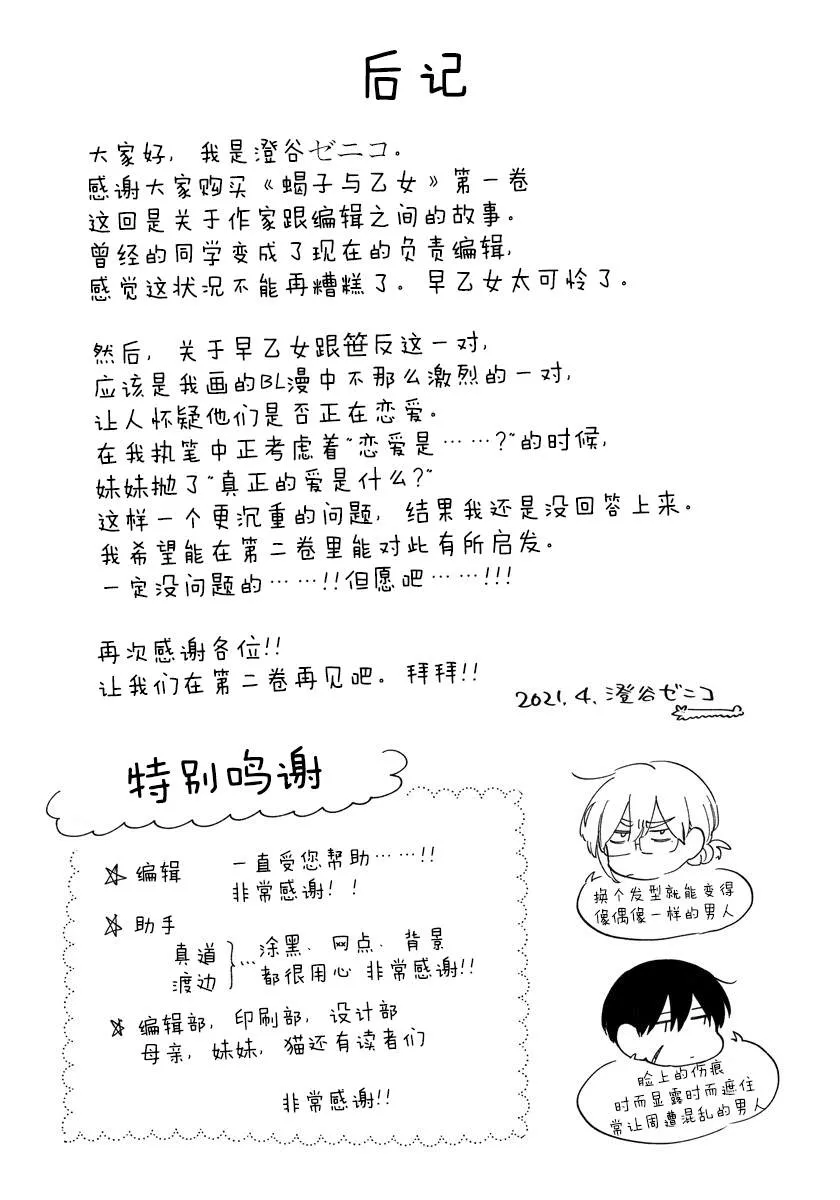 后记
大家好，我是澄谷ゼニコ。
感谢大家购买《蝎子与乙女》第一卷
这回是关于作家跟编辑之间的故事。
曾经的同学变成了现在的负责编辑，
感觉这状况不能再糟糕了。早乙女太可怜了。
然后，关于早乙女跟笹反这一对，
应该是我画的BL漫中不那么激烈的一对，
让人怀疑他们是否正在恋爱。
在我执笔中正考虑着“恋爱是……?”的时候，
妹妹抛了“真正的爱是什么?”
这样一个更沉重的问题，结果我还是没回答上来。
我希望能在第二卷里能对此有所启发。
一定没问题的……!!但愿吧……!!!
再次感谢各位!!
让我们在第二卷再见吧。拜拜!!
2021.4.澄谷ゼニコ
特别鸣谢
☆编辑 一直受您帮助……!!
非常感谢！！
☆助手
真道
渡边
…涂黑、网点、背景
都很用心 非常感谢!!
☆编辑部，印刷部，设计部
母亲，妹妹，猫还有读者们
非常感谢!!
换个发型就能变得
像偶像一样的男人
脸上的伤痕
时而显露时而遮住
常让周遭混乱的男人